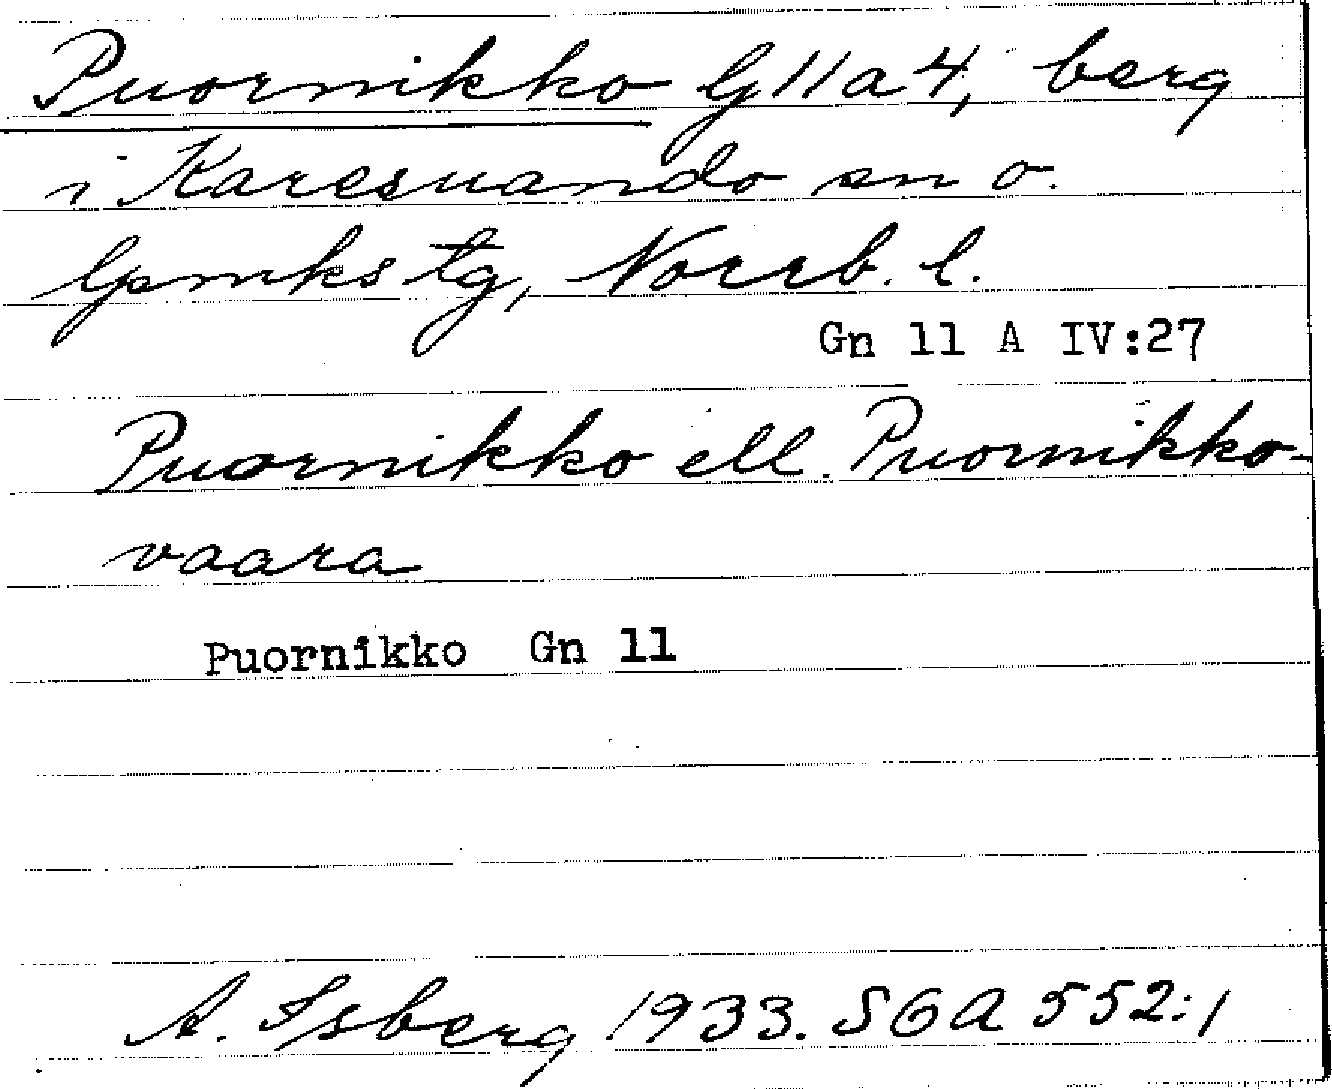 Puornikko G 11 a 4, berg
i Karesuando sn o.
lpmks tg, Norrb. l.
Gn 11 A IV:27
Puornikko ell. Puornikko-
vaara
Puornikko Gn 11
A. Isberg 1933. SGA 552:1